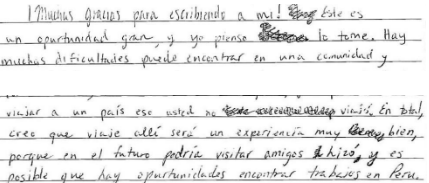 ¡Muchas gracias para escribiendo a mi! Este es
un oportunidad gran, y yo pienso lo tome. Hay
muchas dificultades puede encontrar en una comunidad y
viajar a un país eso usted no viajó. En total,
creo que viaje allí será un experiencia muy bien,
porque en el futuro podría visitar amigos hizó, y es
posible que hay opurtunidades encontrar trabajos en Peru.